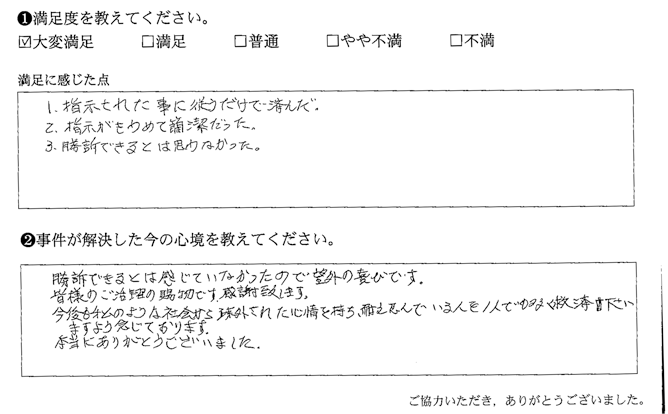 ❶満足度を教えてください。
☑大変満足 □満足 □普通 □やや不満 □不満
満足に感じた点
1. 指示された事に従うだけで済んだ。
2. 指示がきわめて簡潔だった。
3. 勝訴できるとは思わなかった。
❷事件が解決した今の心境を教えてください。
勝訴できるとは感じていなかったので望外の喜びです。
皆様のご の賜物です。感謝致します。
今後も私のような社会から疎外された心情を持ち、耐え忍んでいる人を1人でも 救済 下さい
ますよう念じております。
本当にありがとうございました。
ご協力いただき、ありがとうございました。